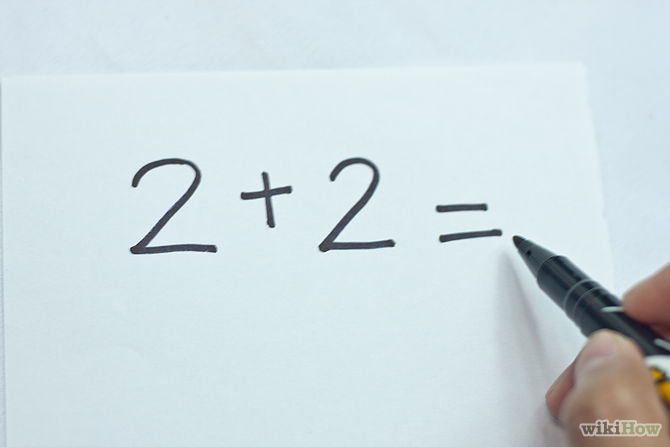 2 + 2 =
wikiHow